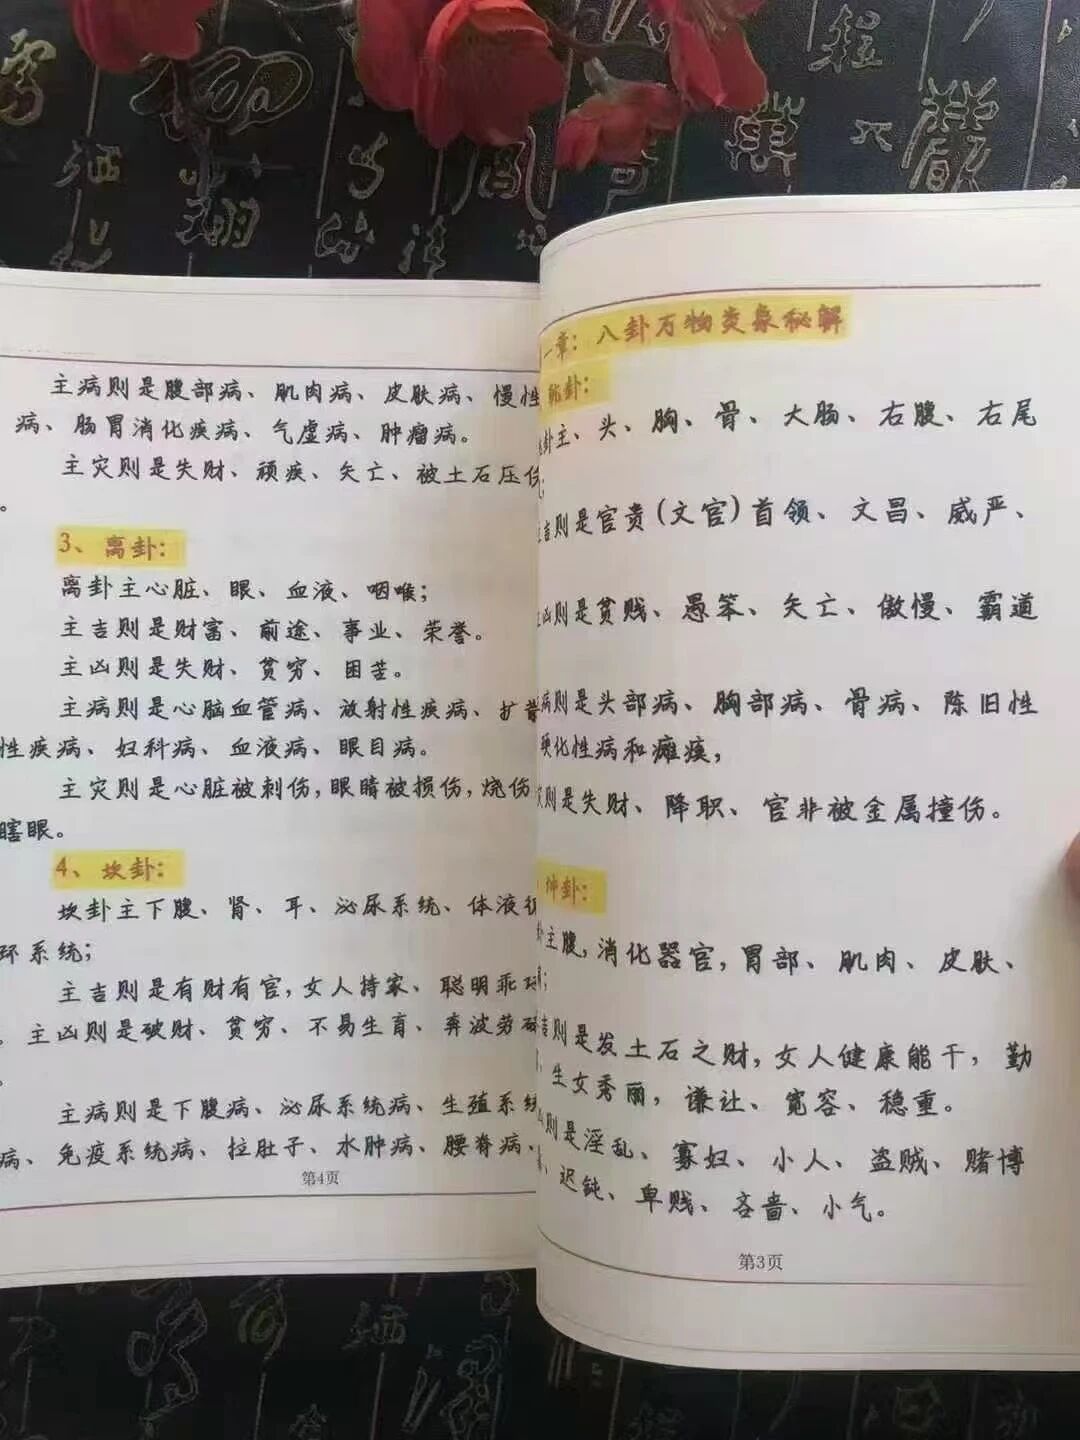 主病则是腹部病、肌肉病、皮肤病、慢性
病、肠胃消化疾病、气虚病、肿瘤病。
主灾则是失财、顽疾、矢亡、被土石压伤
。
3、离卦：
离卦主心脏、眼、血液、咽喉；
主吉则是财富、前途、事业、荣誉。
主凶则是失财、贫穷、困苦。
主病则是心脑血管病、放射性疾病、扩散
性疾病、妇科病、血液病、眼目病。
主灾则是心脏被刺伤，眼睛被损伤，烧伤
瞎眼。
4、坎卦：
坎卦主下腹、肾、耳、泌尿系统、体液循
环系统；
主吉则是有财有官，女人持家、聪明乖巧
。主凶则是破财、贫穷、不易生育、奔波劳碌
。
主病则是下腹病、泌尿系统病、生殖系统
病、免疫系统病、拉肚子、水肿病、腰脊病、
第4页
一章：八卦万物类象秘解
乾卦：
卦主、头、胸、骨、大肠、右腹、右尾
；
主吉则是官贵(文官)首领、文昌、威严、
主凶则是贫贱、愚笨、矢亡、傲慢、霸道
病则是头部病、胸部病、骨病、陈旧性
硬化性病和瘫痪，
灾则是失财、降职、官非被金属撞伤。
坤卦：
卦主腹，消化器官，胃部、肌肉、皮肤、
；
吉则是发土石之财，女人健康能干，勤
，生女秀丽，谦让、宽容、稳重。
凶则是淫乱、寡妇、小人、盗贼、赌博
、迟钝、卑贱、吝啬、小气。
第3页